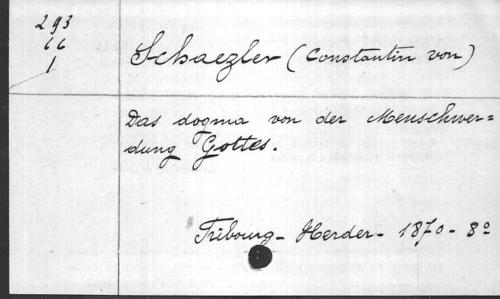 293
66
1
Schaezler (Constantin von)
Das dogma von der Menschwer=
dung Gottes.
Fribourg - Herder - 1870 - 8º